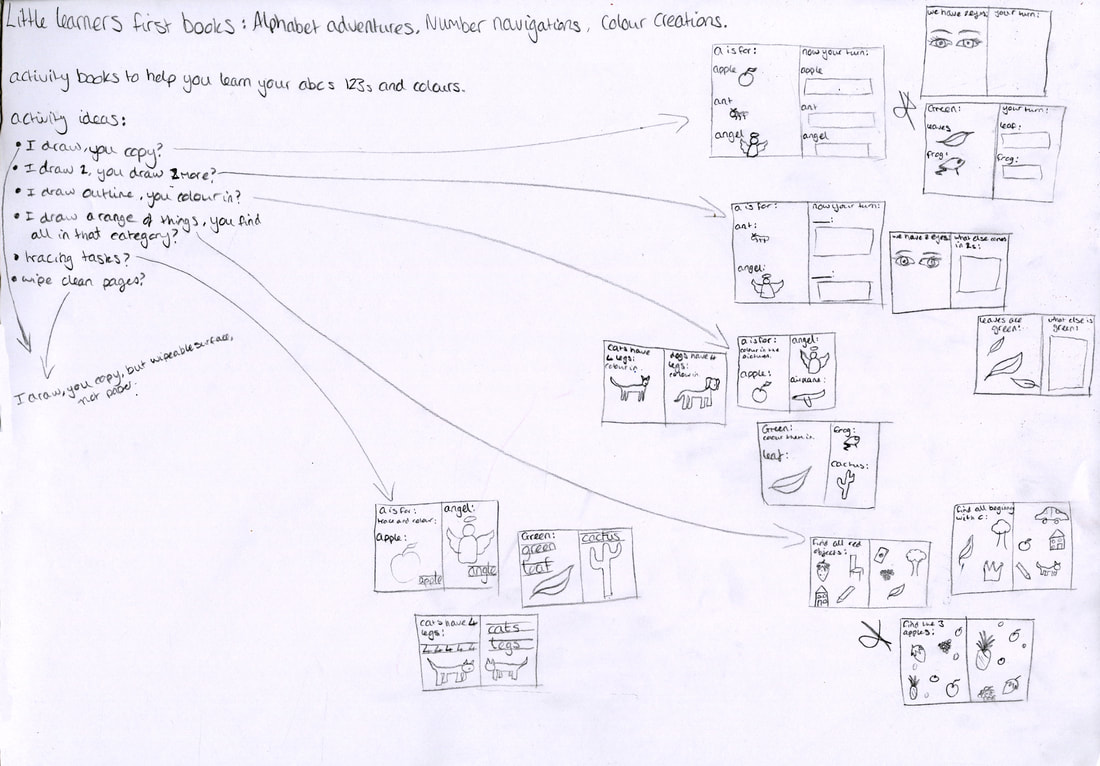 Little learners first books: Alphabet adventures, Number navigations, colour creations.
activity books to help you learn your abcs 123s and colours.
activity ideas:
• I draw, you copy?
• I draw 2, you draw 2 more?
• I draw outline, you colour in?
• I draw a range of things, you find
all in that category?
• tracing tasks?
• wipe clean pages?
I draw, you copy, but wipeable surface,
not paper.
a is for:
apple
ant
angel
now your turn:
apple
ant
angel
we have 2 eyes:
your turn:
Green:
leaves
frog:
your turn:
leaf:
frog:
a is for:
ant:
angel:
now your turn:
we have 2 eyes
what else comes
in 2s:
leaves are
green:
what else is
green:
cats have
4 legs:
colour in.
dogs have 4
legs:
colour in.
a is for:
colour in the
pictures.
apple:
angel:
airplane:
Green:
colour them in.
leaf:
frog:
cactus:
a is for:
trace and colour:
apple:
apple
angel:
angle
Green:
green
leaf
cactus
cats have 4
legs:
4 4 4 4 4
cats
legs
Find all red
objects:
Find all begining
with c:
Find the 3
apples: